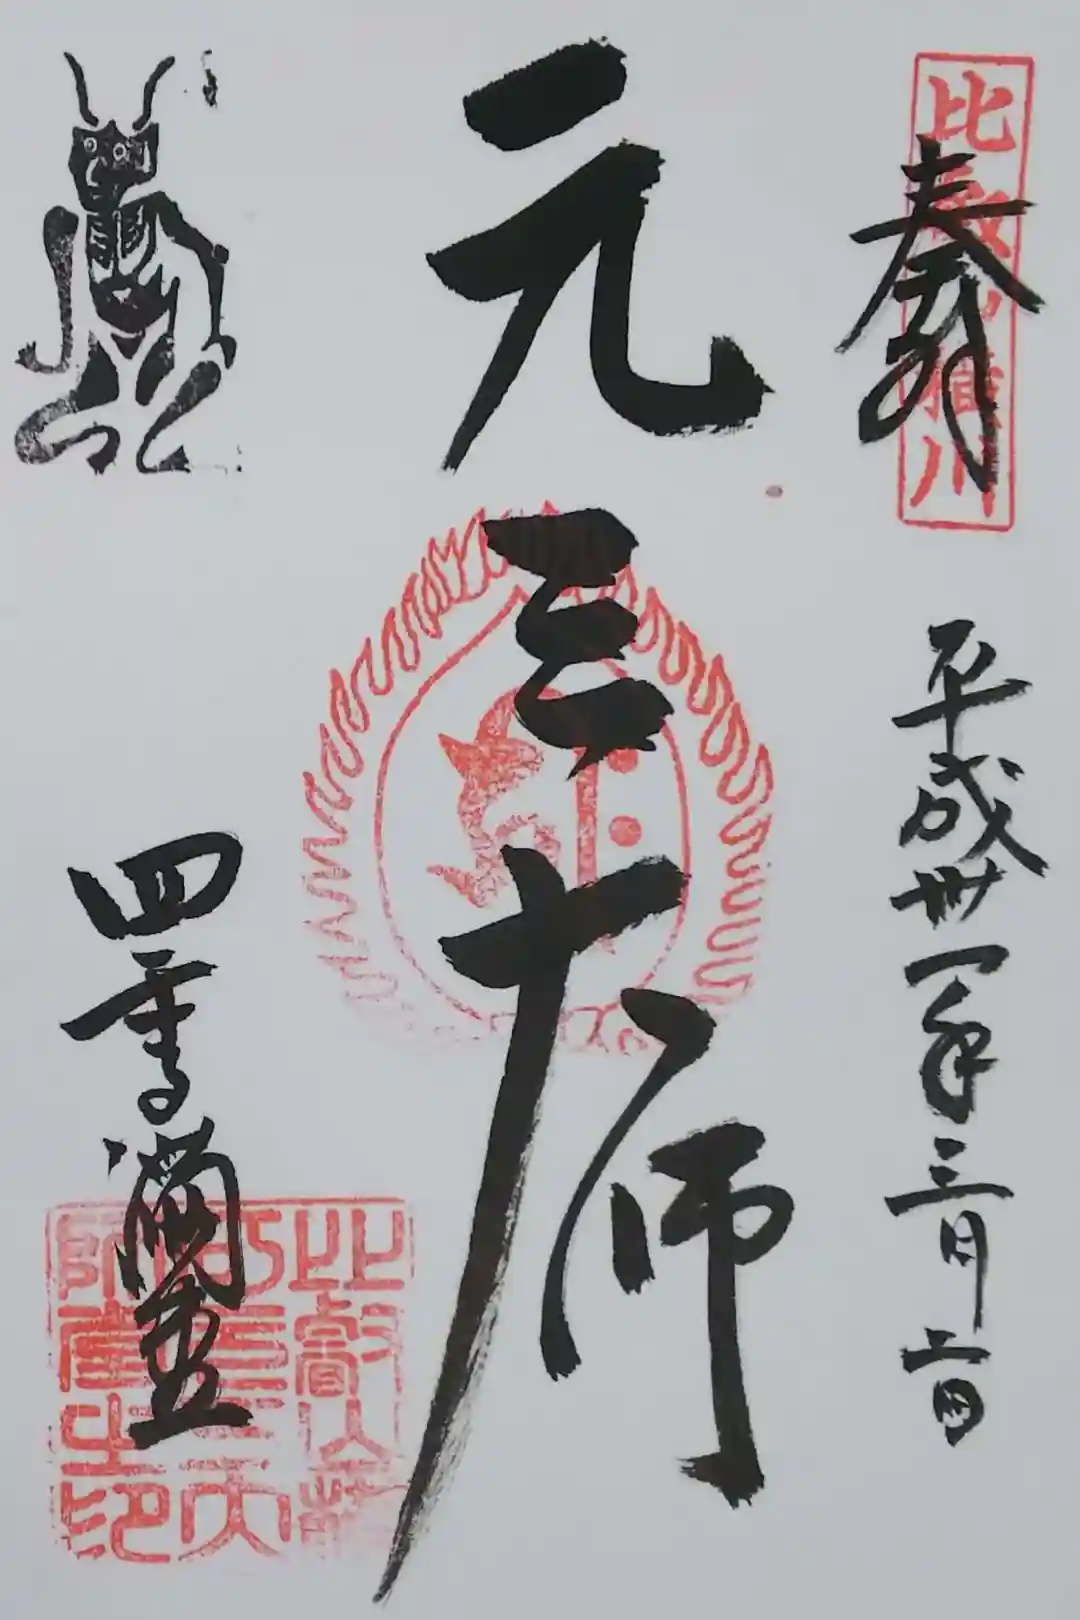 奉拝
比叡山横川
平成卅一年三月二日
元三大師
四季講堂
比叡山横川元三大師堂之印